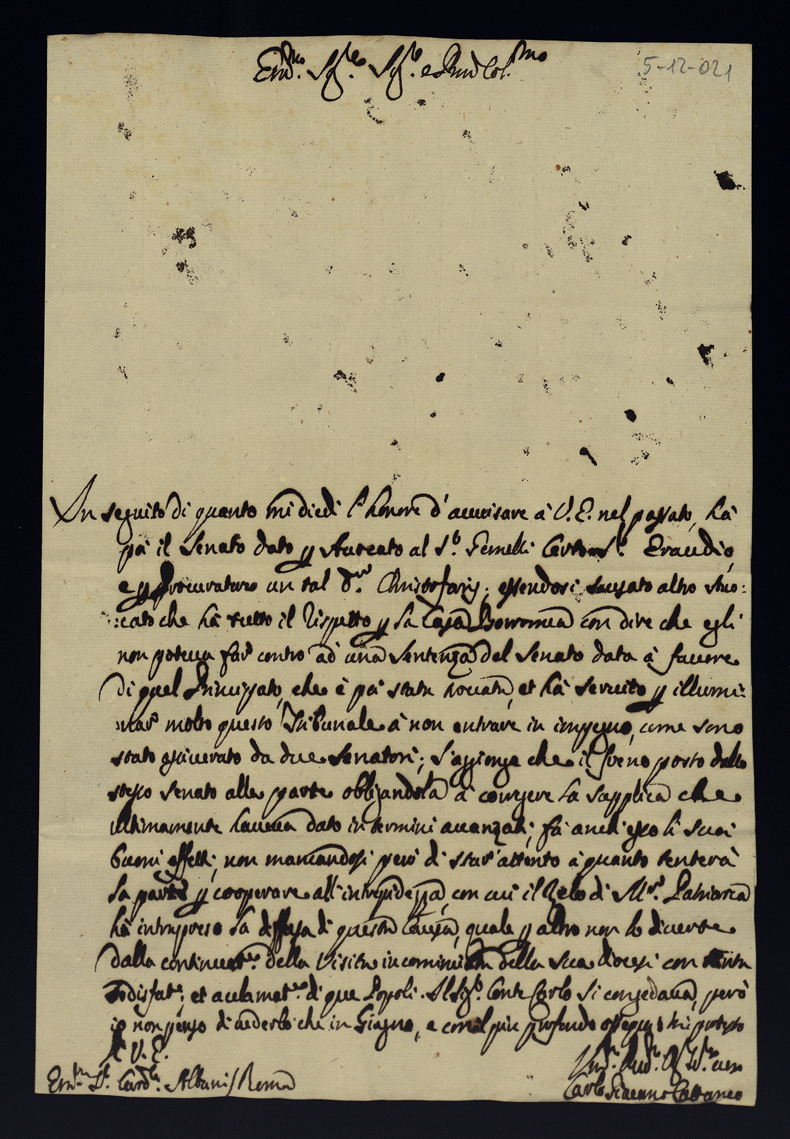 Em.mo Sig.re Sig.re e Pron Col.mo
5-12-021
In seguito di quanto mi diedi l'honore d'auuisare à V.E. nel passato, hà
già il Senato dato p Auocato al S.r
e p Procuratore un tal D.r Christoforis; essendosi scusato altro Auuo:
:cato che hà tutto il rispetto p la Casa Borromea con dire che egli
non poteua far contro ad una Sentenza del Senato data à fauore
di quel Principato, che è già stata trouata, et hà seruito p illumi:
:nar molto questo Tribunale à non entrare in impegno, come sono
stato assicurato da due Senatori; s'aggionge che il freno posto dallo
stesso Senato alla parte obligandola à correggere la supplica che
ultimamente haueua dato in termini auanzati, fà anch'esso li suoi
buoni effetti, non mancandosi però di star attento à quanto tenterà
la parte p cooperare all'intrepidezza, con cui il Zelo di Mons.r Patriarca
hà intrapreso la difesa di questa Causa, quale p altro non lo diuerte
dalla continuat.e della Visita incominciata della sua diocesi con tanta
sodisfat.e, et aclamat.e di que Popoli. Il Sig.r Conte Carlo si congedaua, però
io non penso di uederlo che in Giugno, e con il più profondo ossequio mi protesto
A V.E.
Em.mo S.r Card.le Albani / Roma
Carlo Cattaneo